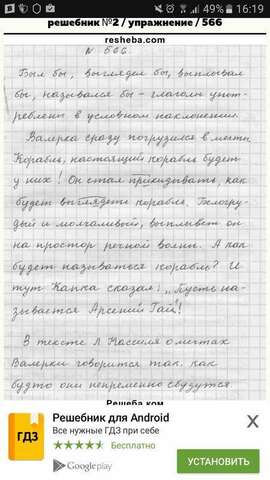 49% 16:19
решебник №2 / упражнение / 566
resheba.com
N 566.
Был бы, выглядел бы, выплывал
бы, назывался бы – глаголы упот-
реблены в условном наклонении.
Валерка сразу погрузился в мечты.
Корабль, настоящий корабль будет
у них! Он стал прикидывать, как
будет выглядеть корабль. Белогру-
дый и молчаливый, выплывет он
на простор речной волны. А как
будет называться корабль? И
тут Капка сказал: „Пусть на-
зывается Арсений Гай"!
В тексте Л. Кассиля о мечтах
Валерки говорится так, как
будто они непременно сбудутся
Решеба.ком
ГДЗ
Решебник для Android
Все нужные ГДЗ при себе
Бесплатно
Google play
УСТАНОВИТЬ